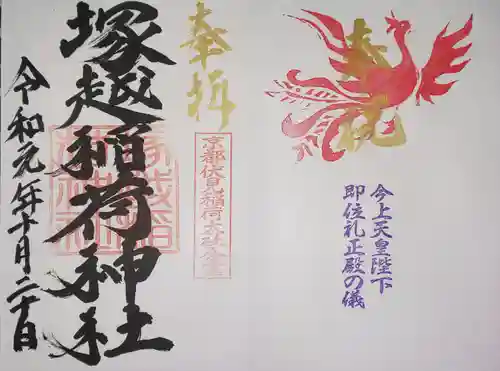 奉祝
今上天皇陛下
即位礼正殿の儀
奉拝
京都伏見稲荷大社
塚越稲荷神社
令和元年十月二十日